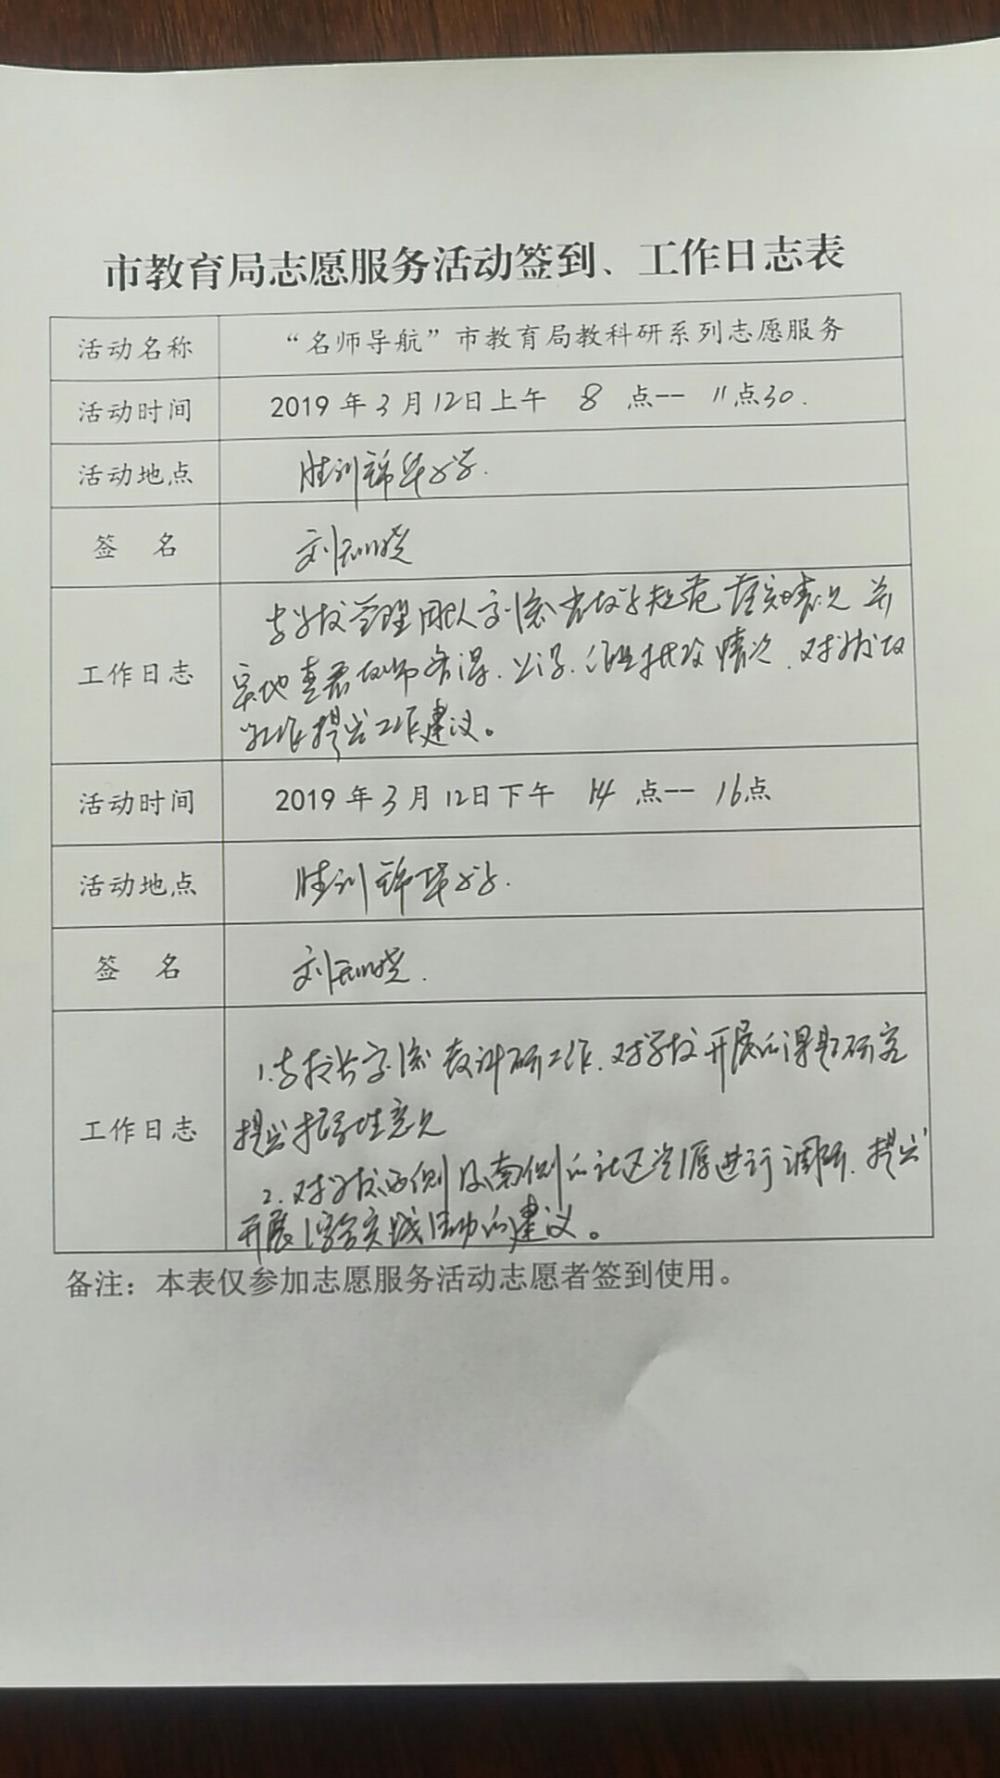 市教育局志愿服务活动签到、工作日志表
活动名称 “名师导航”市教育局教科研系列志愿服务
活动时间 2019年3月12日上午 8 点-- 11点30.
活动地点 胜利锦华小学.
签 名 刘
工作日志 与学校管理团队交流教学规范落实情况 并
实地查看教师备课、上课、作业批改情况、对学校教
学工作提出工作建议。
活动时间 2019年3月12日下午 14 点-- 16点
活动地点 胜利锦华小学.
签 名 刘
工作日志 1.与校长交流教科研工作、对学校开展的课题研究
提出指导性意见
2.对学校西侧及南侧的社区资源进行调研、提出
开展综合实践活动的建议。
备注：本表仅参加志愿服务活动志愿者签到使用。